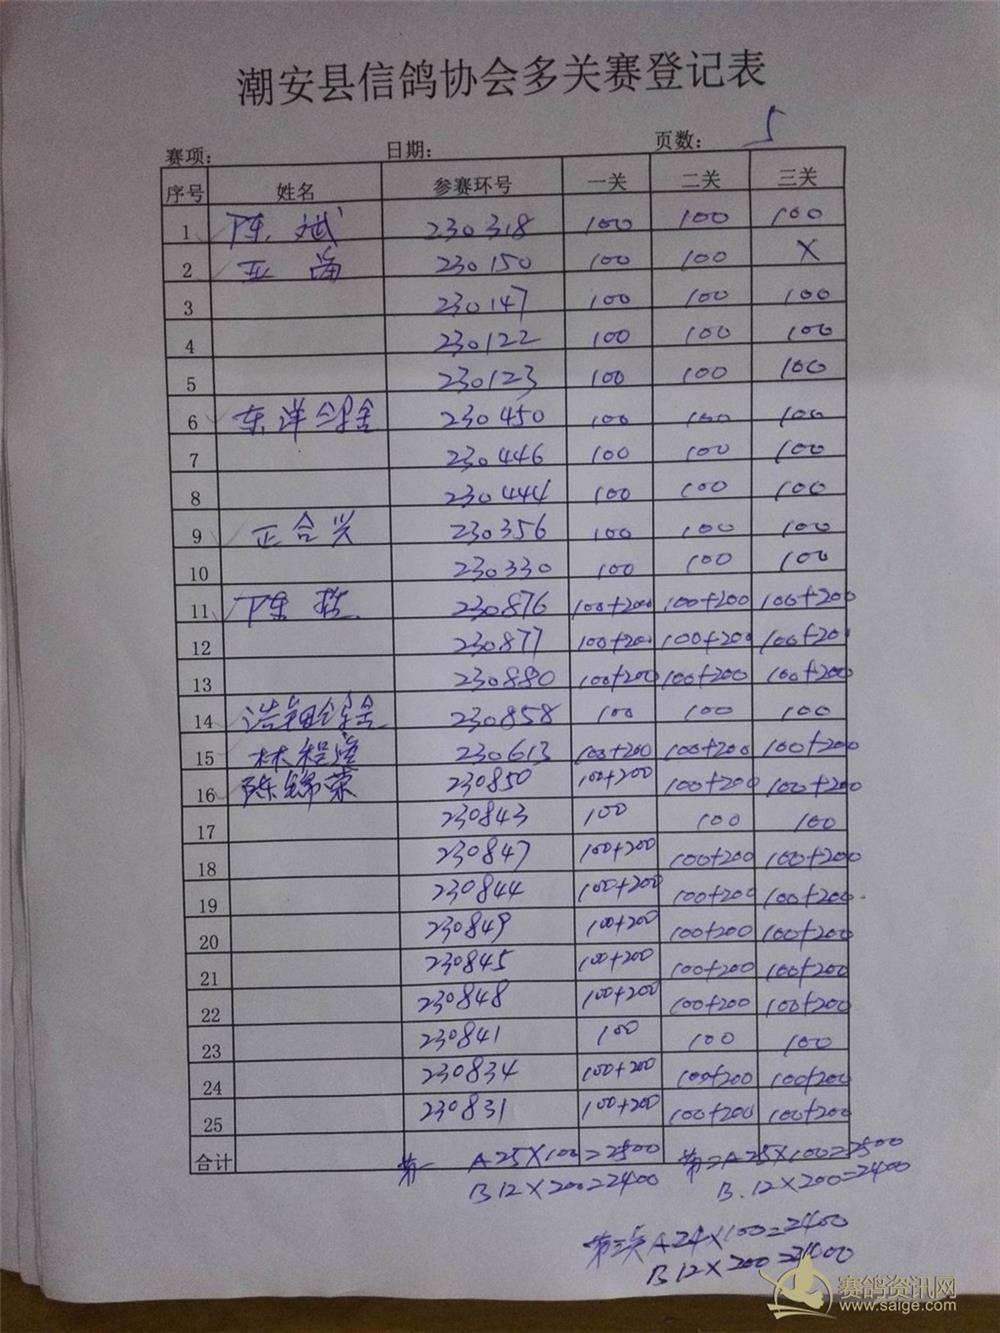 潮安县信鸽协会多关赛登记表
赛项: 日期: 页数: 5
序号 姓名 参赛环号 一关 二关 三关
1 陈斌 230318 100 100 100
2 亚海 230150 100 100 X
3 230147 100 100 100
4 230122 100 100 100
5 230123 100 100 100
6 东洋鸽舍 230450 100 100 100
7 230446 100 100 100
8 230444 100 100 100
9 正合兴 230356 100 100 100
10 230330 100 100 100
11 陈 230876 100+200 100+200 100+200
12 230877 100+200 100+200 100+200
13 230880 100+200 100+200 100+200
14 浩钿鸽舍 230858 100 100 100
15 林程 230613 100+200 100+200 100+200
16 陈锦荣 230850 100+200 100+200 100+200
17 230843 100 100 100
18 230847 100+200 100+200 100+200
19 230844 100+200 100+200 100+200
20 230849 100+200 100+200 100+200
21 230845 100+200 100+200 100+200
22 230848 100+200 100+200 100+200
23 230841 100 100 100
24 230834 100+200 100+200 100+200
25 230831 100+200 100+200 100+200
合计 第一 A 25×100=2500 第二 A 25×100=2500
B 12×200=2400 B. 12×200=2400
第三关 A 24×100=2400
B 12×200=2400
赛鸽资讯网
www.saige.com